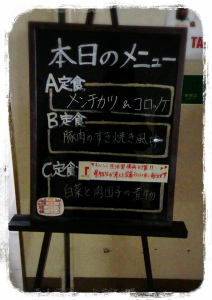 本日のメニュー
A定食
メンチカツ&コロッケ
B定食
豚肉のすき焼き風
C定食
白菜と肉団子の煮物
TA